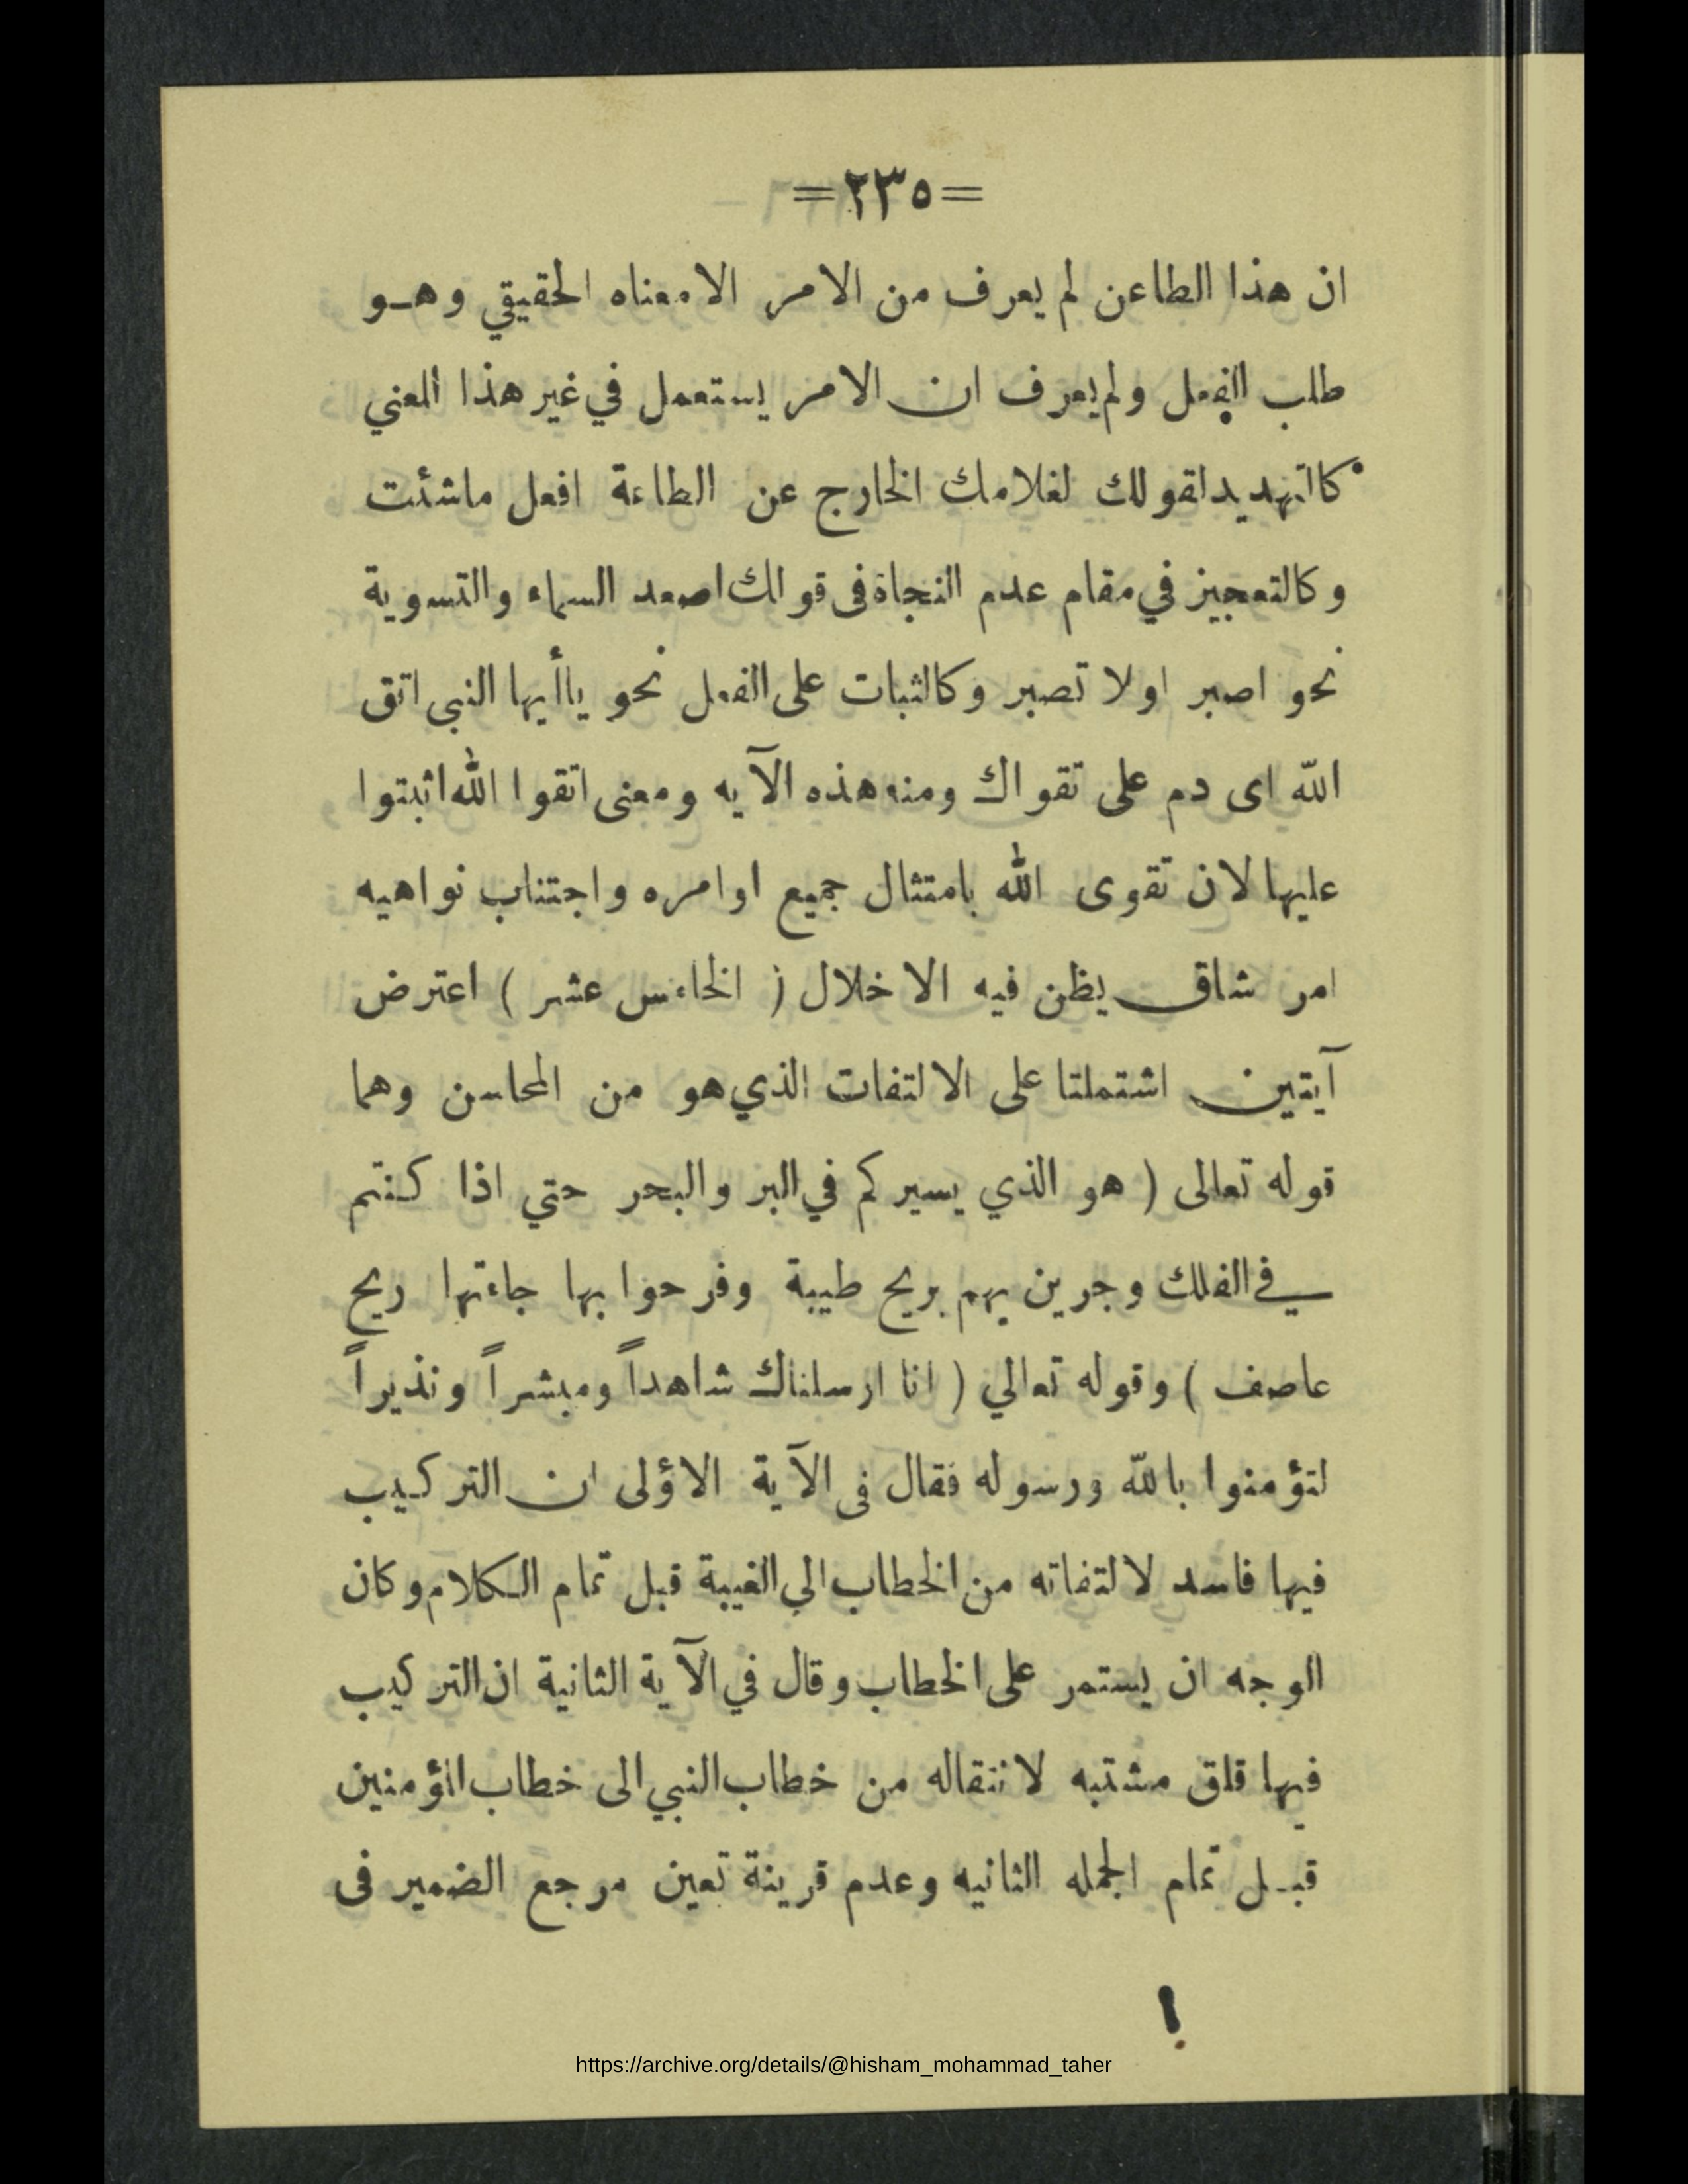 =٢٣٥=
ان هذا الطاعن لم يعرف من الامر الامعناه الحقيقي وهو
طلب الفعل ولم يعرف ان الامر يستعمل في غير هذا المعني
كالتهديد لقولك لغلامك الخارج عن الطاعة افعل ماشئت
وكالتعجيز في مقام عدم النجاة فى قولك اصعد السماء والتسوية
نحو اصبر اولا تصبر وكالثبات على الفعل نحو ياأيها النبى اتق
الله اى دم على تقواك ومنه هذه الآيه ومعنى اتقوا الله اثبتوا
عليها لان تقوى الله بامتثال جميع اوامره واجتناب نواهيه
امر شاق يظن فيه الاخلال ( الخامس عشر ) اعترض
آيتين اشتملتا على الالتفات الذي هو من المحاسن وهما
قوله تعالى ( هو الذي يسيركم في البر والبحر حتي اذا كنتم
في الفلك وجرين بهم بريح طيبة وفرحوا بها جاءتها ريح
عاصف ) وقوله تعالي ( انا ارسلناك شاهداً ومبشراً ونذيراً
لتؤمنوا بالله ورسوله فقال فى الآية الاؤلى ان التركيب
فيها فاسد لالتفاته من الخطاب الي الغيبة قبل تمام الكلام وكان
الوجه ان يستمر على الخطاب وقال في الآية الثانية ان التركيب
فيها قلق مشتبه لانتقاله من خطاب النبي الى خطاب المؤمنين
قبل تمام الجمله الثانيه وعدم قرينة تعين مرجع الضمير فى
https://archive.org/details/@hisham_mohammad_taher